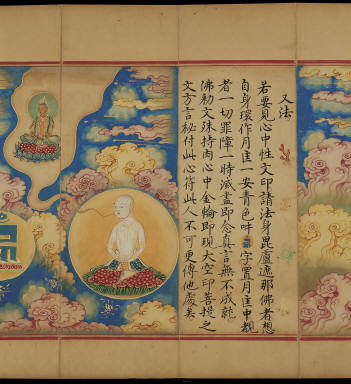 又法
若要見心中性文印請法身毘盧遮那佛者想
自身環作月匡一安青色吽字置月匡中觀
者一切罪障一時滅盡即念真言無不成就
佛勅文殊持肉心中金輪即現大空印菩提之
文方言秘付此心符此人不可更傳他處矣